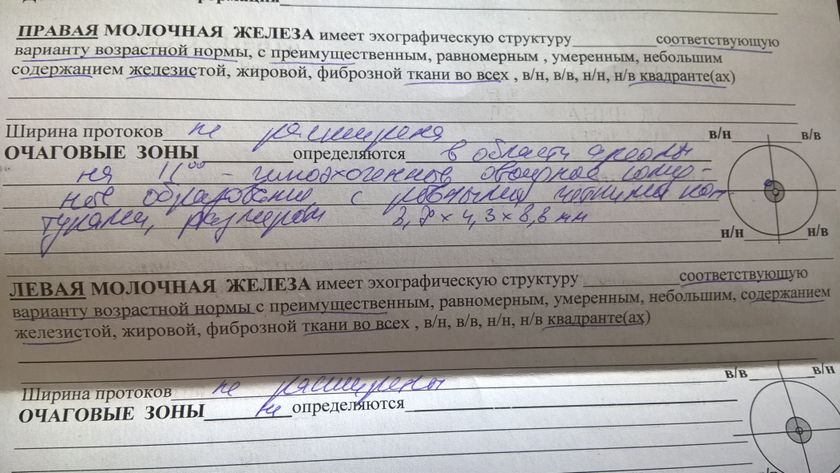 ПРАВАЯ МОЛОЧНАЯ ЖЕЛЕЗА имеет эхографическую структуру соответствующую
варианту возрастной нормы, с преимущественным, равномерным , умеренным, небольшим
содержанием железистой, жировой, фиброзной ткани во всех , в/н, в/в, н/н, н/в квадранте(ах)
Ширина протоков не расширена в/н в/в
ОЧАГОВЫЕ ЗОНЫ определяются в области ареолы
на 11⁰⁰ - гипоэхогенное овоидное солид-
ное образование с ровными четкими кон-
турами, размером 2,7 х 4,3 х 8,8 мм
н/н н/в
ЛЕВАЯ МОЛОЧНАЯ ЖЕЛЕЗА имеет эхографическую структуру соответствующую
варианту возрастной нормы с преимущественным, равномерным, умеренным, небольшим, содержанием
железистой, жировой, фиброзной ткани во всех , в/н, в/в, н/н, н/в квадранте(ах)
Ширина протоков не расширены в/в в/н
ОЧАГОВЫЕ ЗОНЫ не определяются